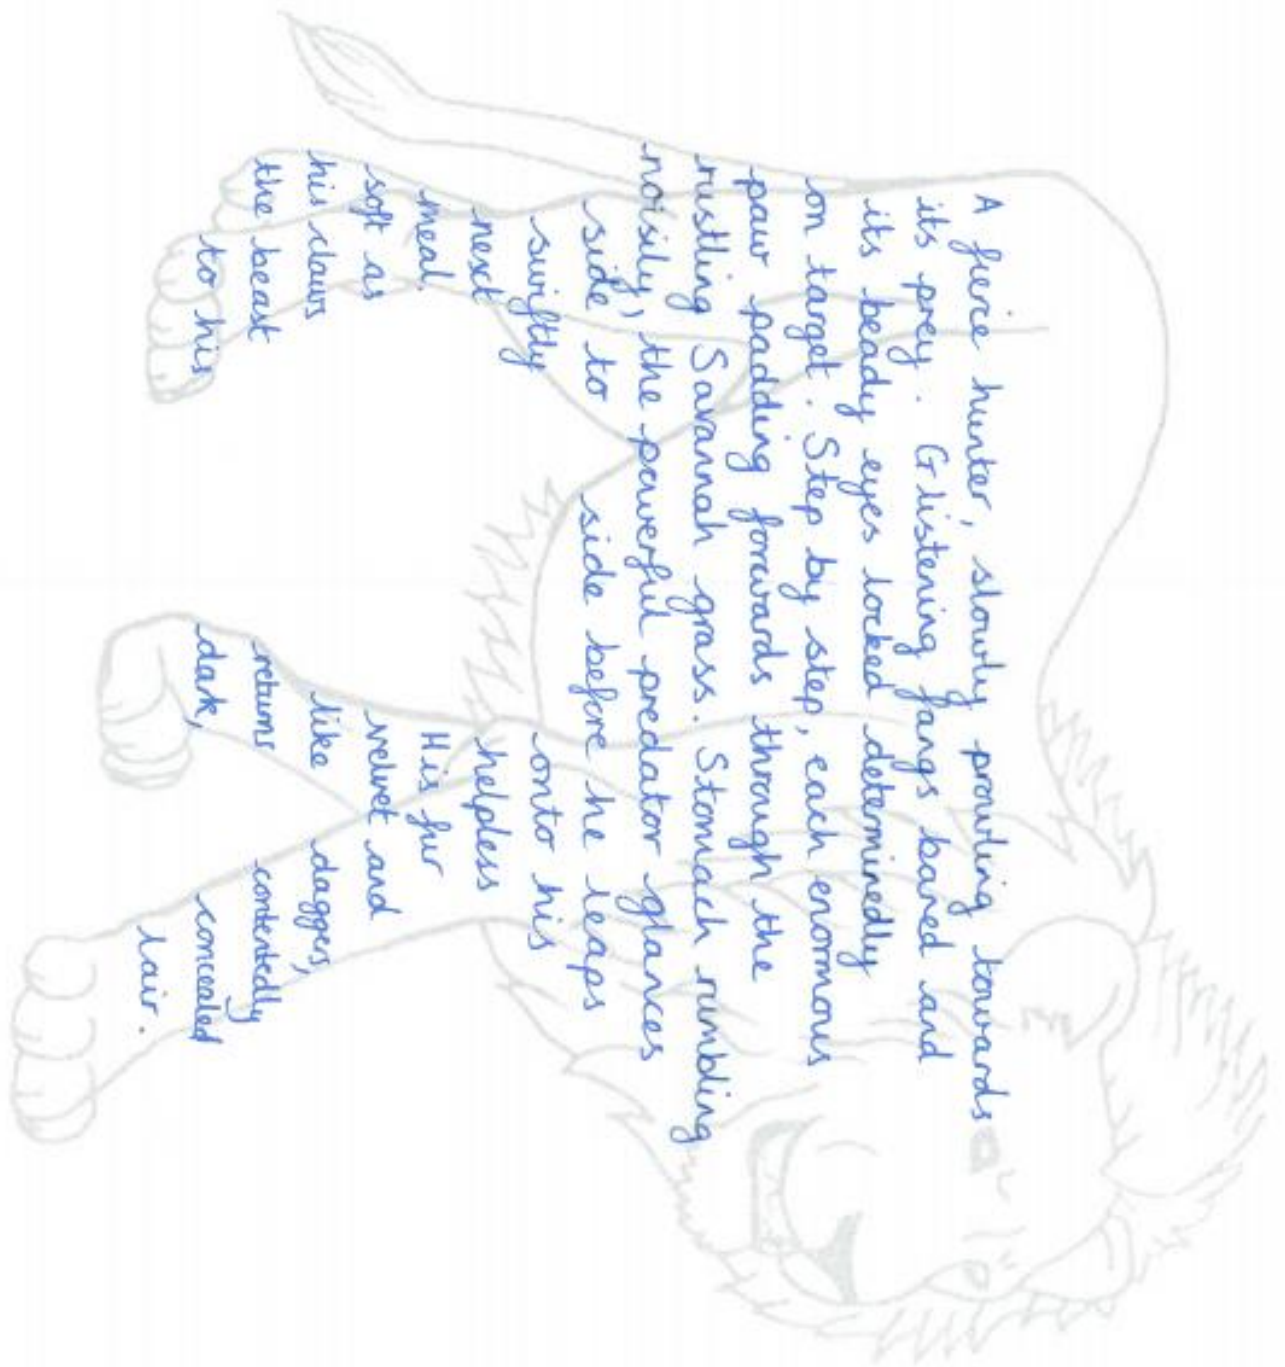 A fierce hunter, slowly prowling towards
its prey. Glistening fangs bared and
its beady eyes locked determinedly
on target. Step by step, each enormous
paw padding forwards through the
rustling Savannah grass. Stomach rumbling
noisily, the powerful predator glances
side to side before he leaps
swiftly onto his
next helpless
meal. His fur
soft as velvet and
his claws like daggers,
the beast returns contentedly
to his dark, concealed
lair.